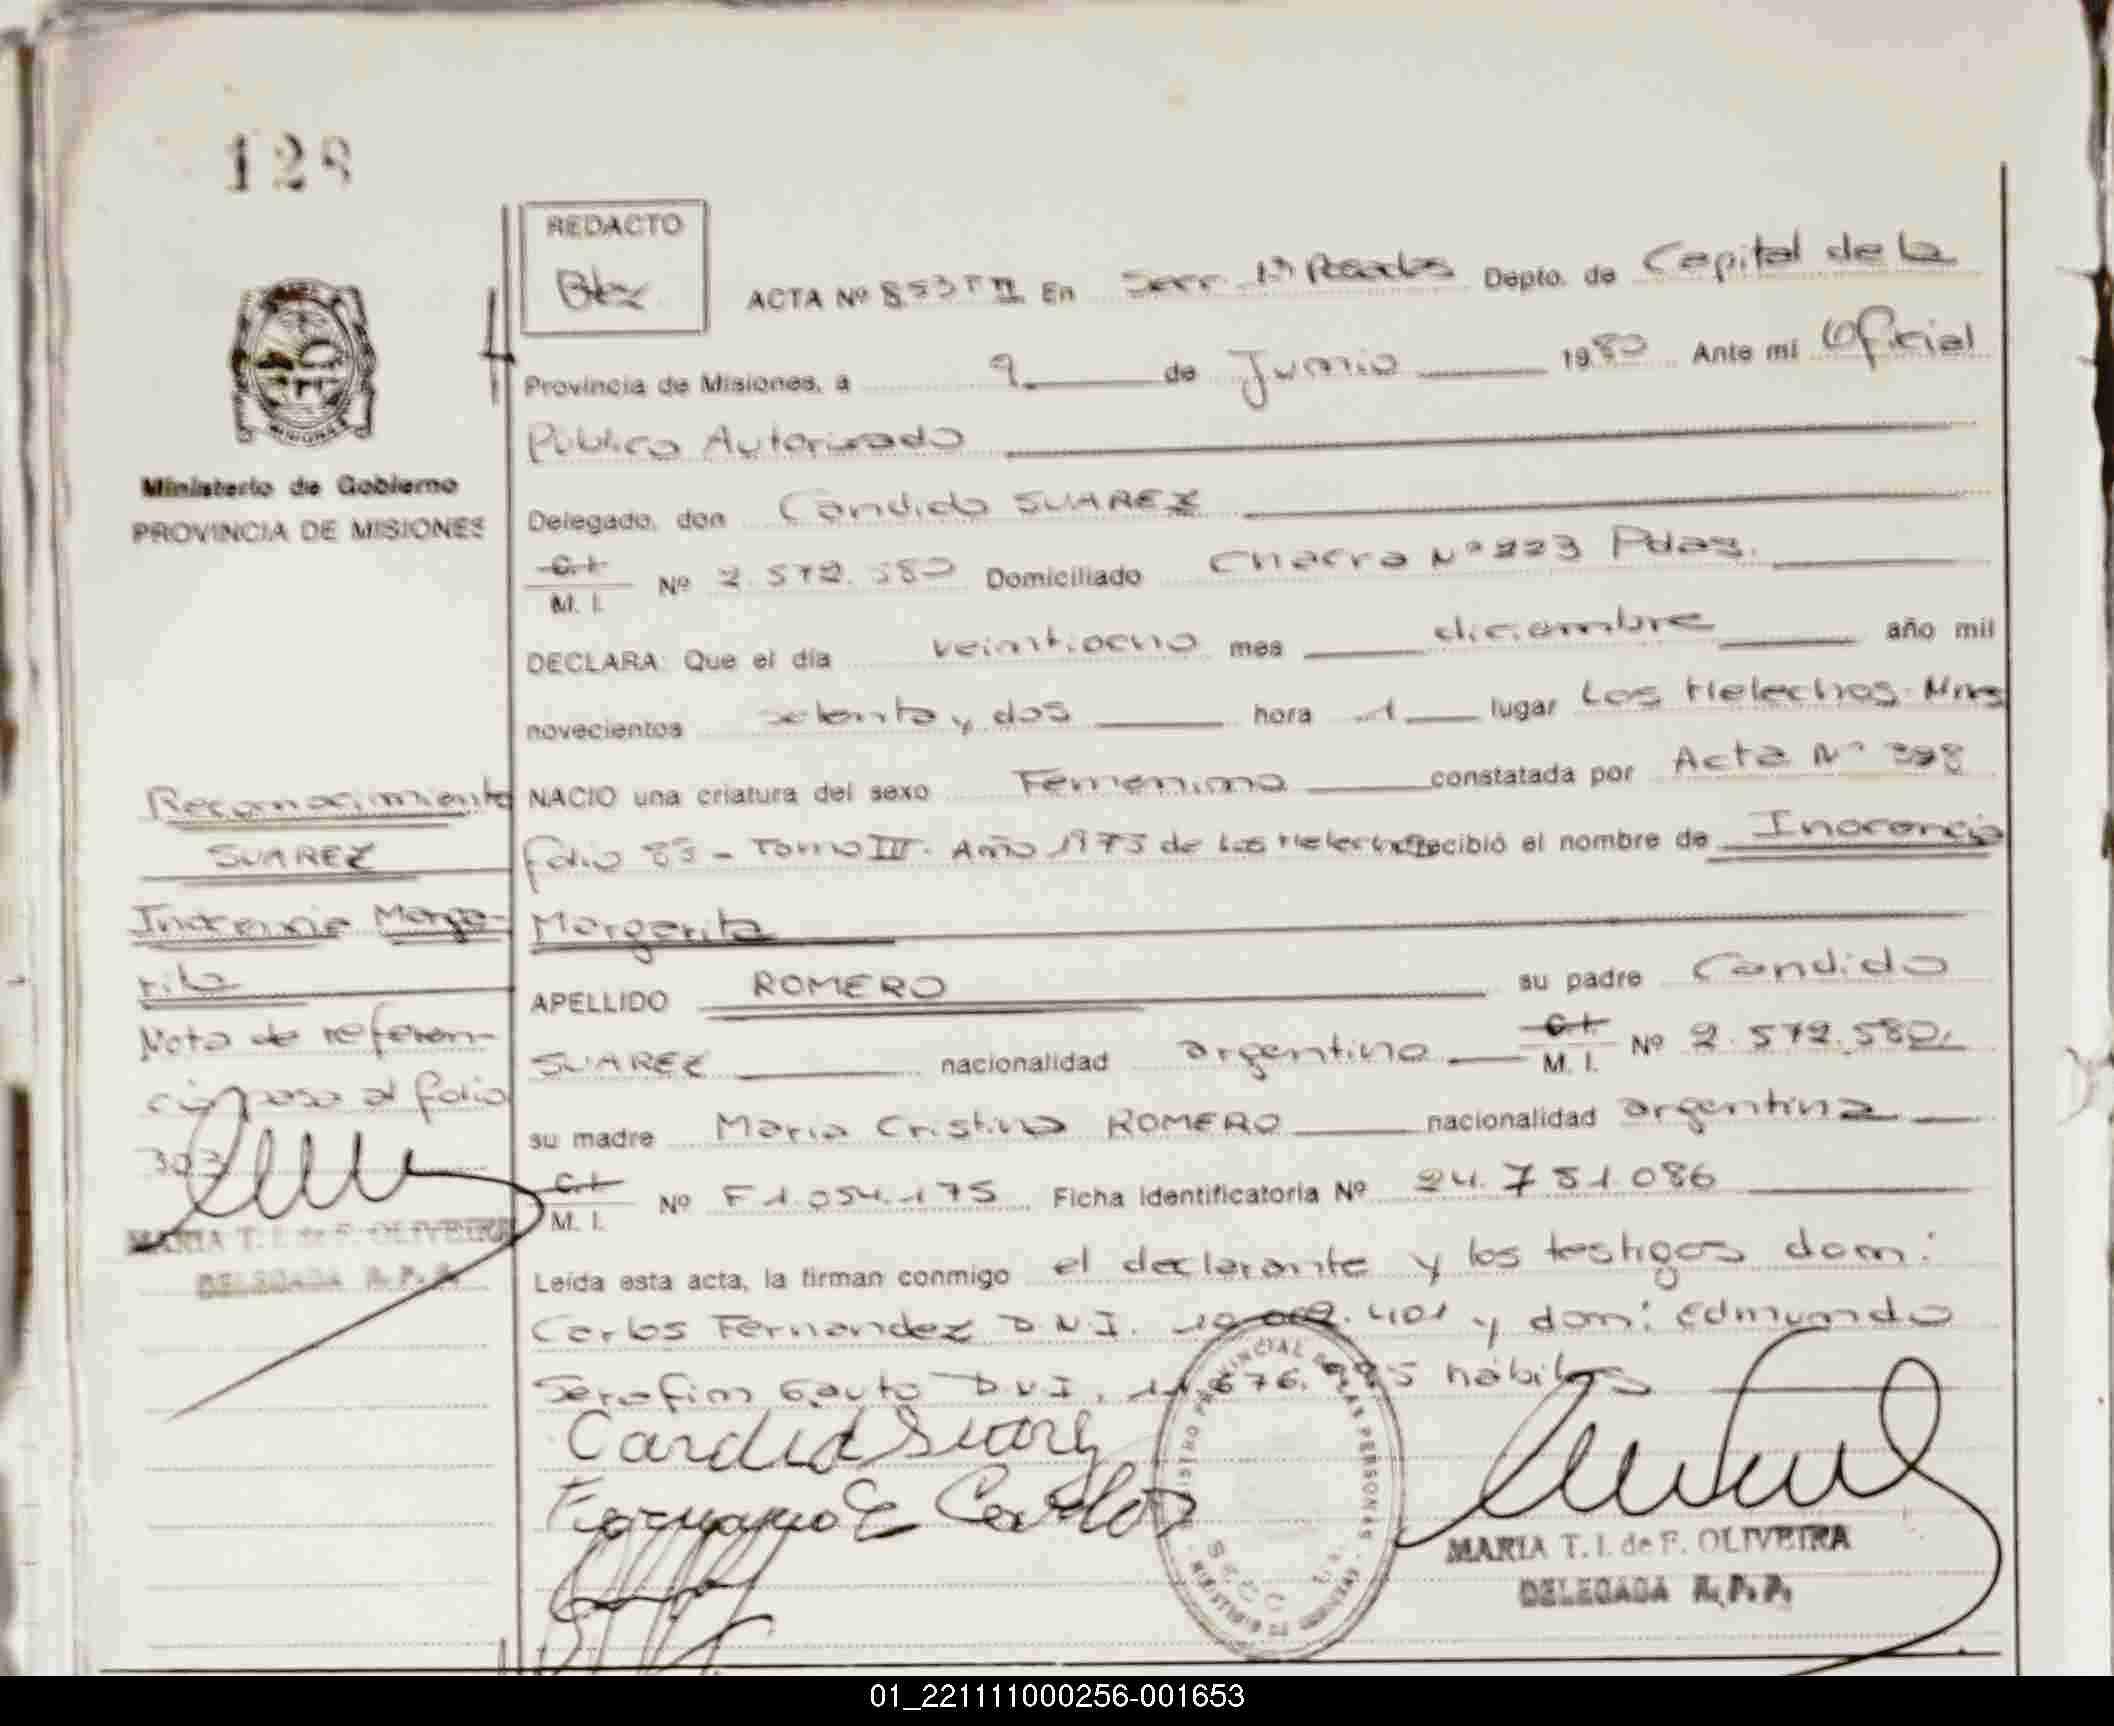 128
REDACTO
ACTA Nº 853 T II En Secc. 1ª Posadas Depto. de Capital de la
Provincia de Misiones, a 9 de Junio 1980 Ante mi Oficial
Público Autorizado
Delegado, don Candido SUAREZ
C.I. M. I. Nº 2.572.580 Domiciliado Chacra Nº 223 Pdas.
DECLARA: Que el día veintiocho mes diciembre año mil
novecientos setenta y dos hora 1 lugar Los Helechos. Mnes
NACIO una criatura del sexo Femenino constatada por Acta Nº 398
folio 83 - Tomo III. Año 1973 de Los Helechos recibió el nombre de Inocencia
Margarita
APELLIDO ROMERO su padre Candido
SUAREZ nacionalidad argentino C.I. M. I. Nº 2.572.580.
su madre Maria Cristina ROMERO nacionalidad argentina
C.I. M. I. Nº F 1.054.175 Ficha identificatoria Nº 24.751.086
Leída esta acta, la firman conmigo el declarante y los testigos don:
Carlos Fernandez D.N.I. 401 y don: Edmundo
Serafin D.N.I. hábiles
Candid Suarez
Carlos
MARIA T. I. de F. OLIVEIRA
DELEGADA R.P.P.
REGISTRO PROVINCIAL DE LAS PERSONAS
MISIONES
Ministerio de Gobierno
PROVINCIA DE MISIONES
Reconocimiento
SUAREZ
Inocencia Marga-
rita
Nota de referen-
cia pasa al folio
303
MARIA T. I. de F. OLIVEIRA
DELEGADA R.P.P.
01_221111000256-001653